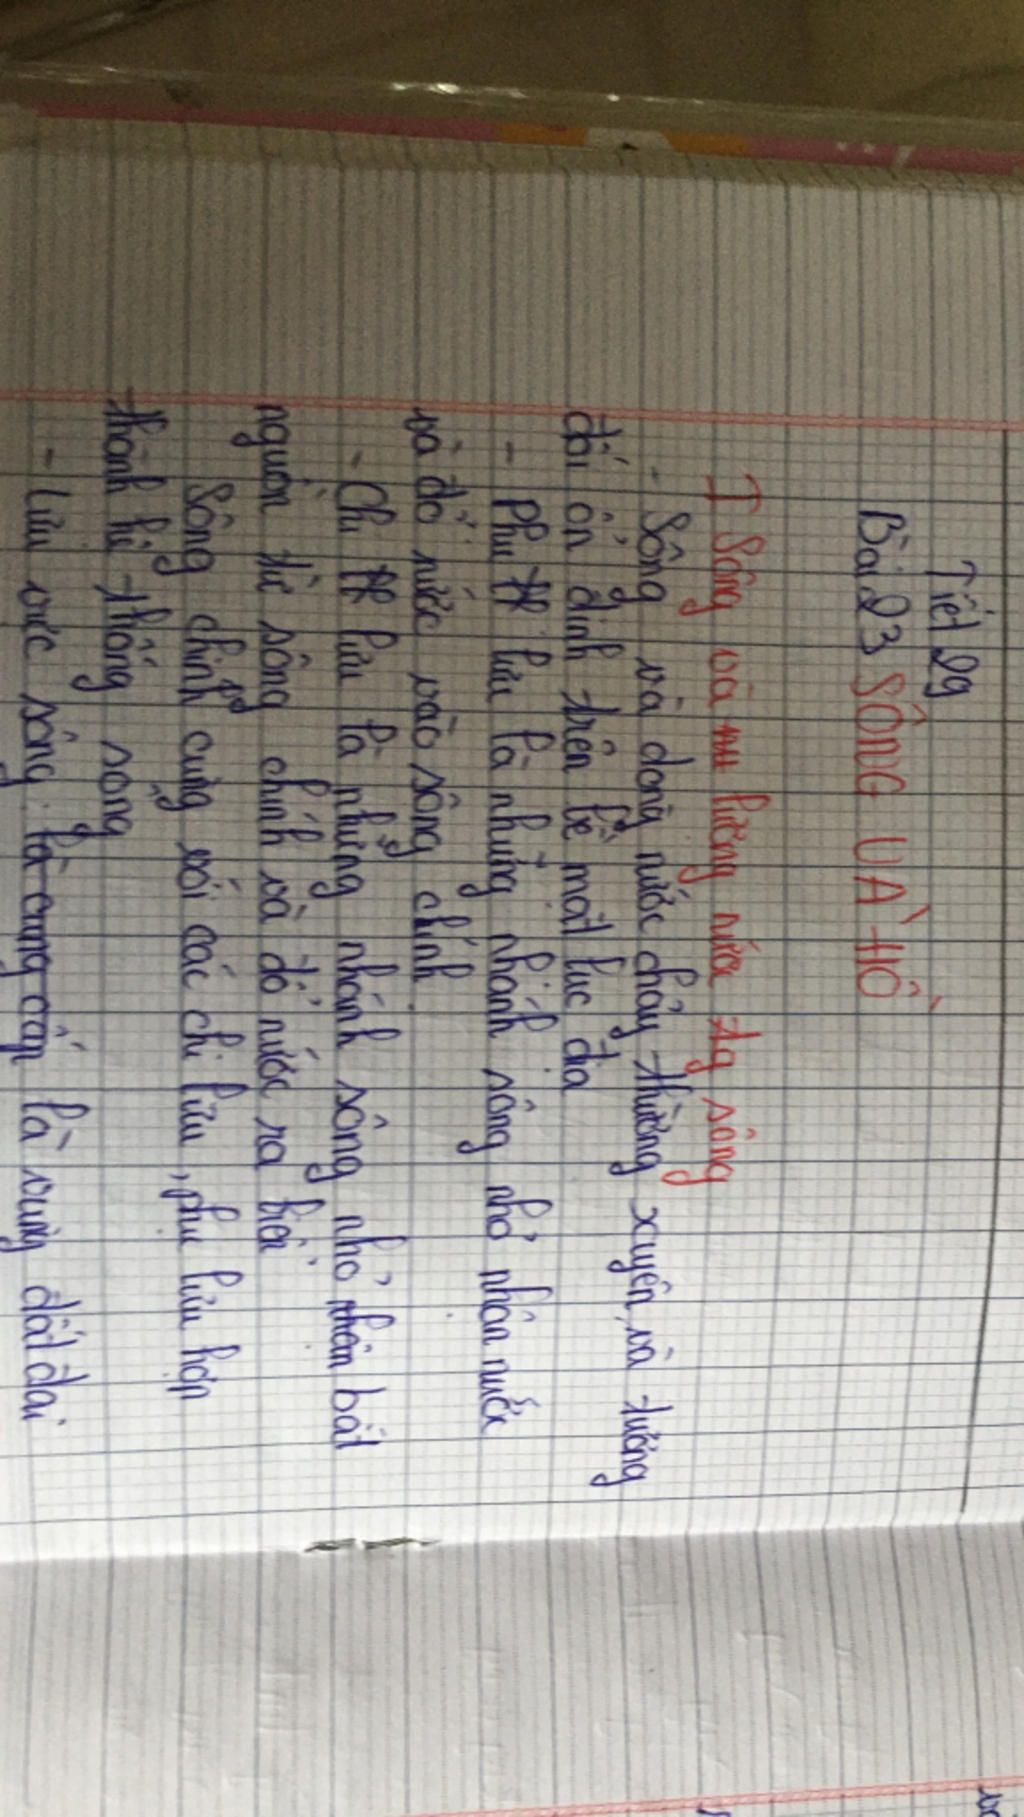 Tiết 29
Bài 23 SÔNG VÀ HỒ
I Sông và lường nước tg sông
- Sông và dong nước chảy thường xuyên, và tương
đối ổn định trên bề mặt lục địa
- Phụ lưu là những nhánh sông nhỏ nhận nước
và đổ nước vào sông chính
- Chi lưu là những nhánh sông nhỏ bắt
nguồn từ sông chính và đổ nước ra biển
Sông chính cùng với các chi lưu, phụ lưu hợp
thành hệ thống sông
- Lưu vực sông: là vùng đất đai